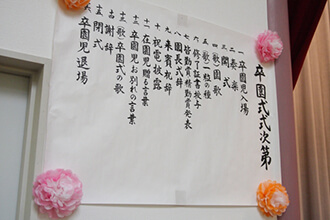 卒園式式次第
一 卒園児入場
二 奏楽
三 開式
四 歌)園歌
五 歌)一粒の種
六 修了証書授与
七 皆勤賞精勤賞発表
八 園長式辞
九 来賓祝辞
十 祝電披露
十一 在園児贈る言葉
十二 卒園児お別れの言葉
十三 歌)卒園式の歌
十四 謝辞
十五 閉式
十六 卒園児退場